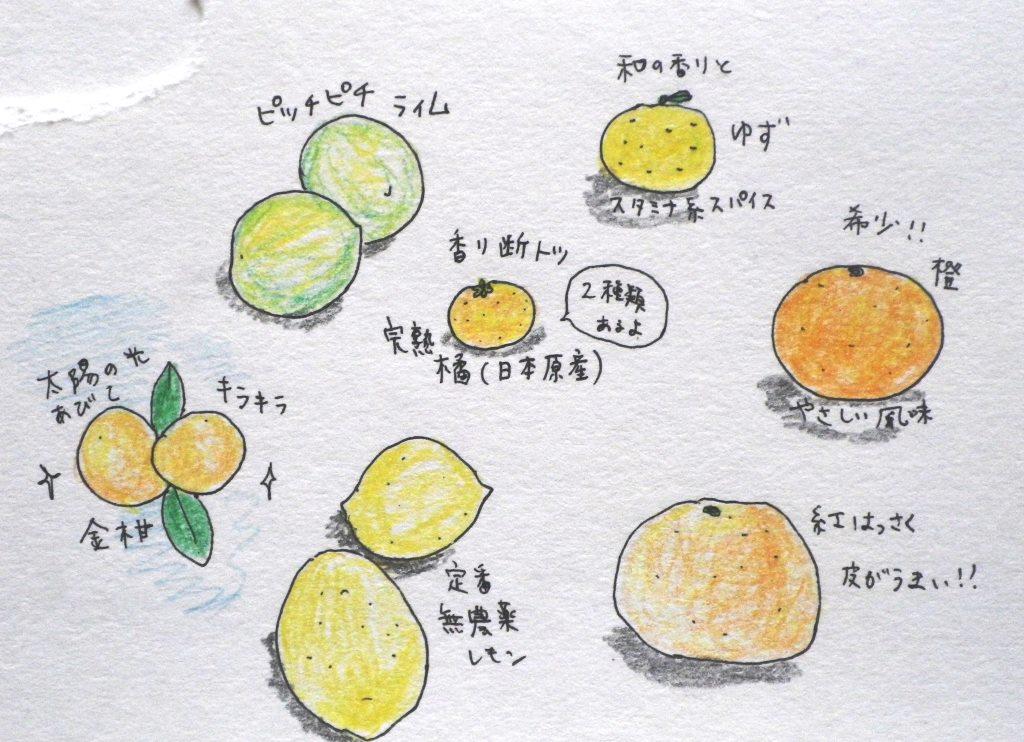 ピッチピチ ライム
和の香りと
ゆず
スタミナ系スパイス
香り断トツ
2種類
あるよ
完熟
橘(日本原産)
希少!!
橙
やさしい風味
太陽の光
あびて
キラキラ
金柑
定番
無農薬
レモン
紅はっさく
皮がうまい!!